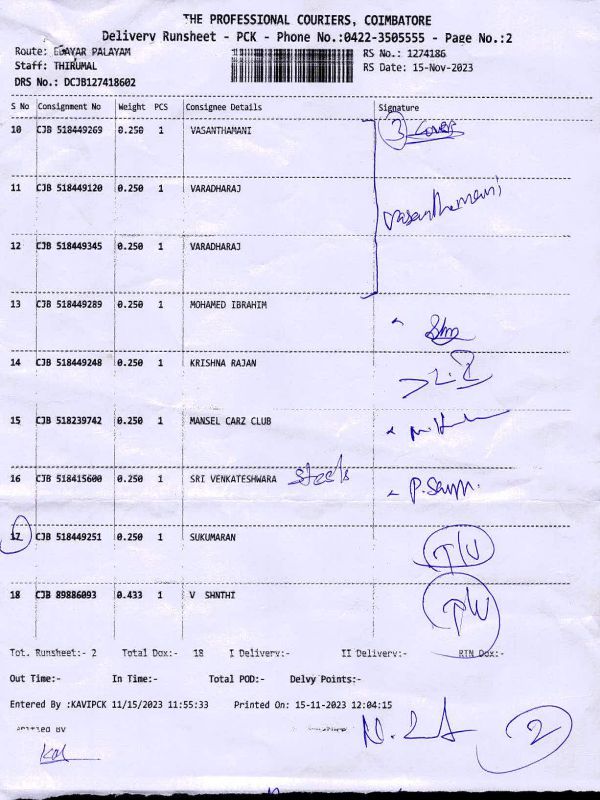 THE PROFESSIONAL COURIERS, COIMBATORE
Delivery Runsheet - PCK - Phone No.:0422-3505555 - Page No.:2
Route: EDAYAR PALAYAM
RS No.: 1274186
Staff: THIRUMAL
RS Date: 15-Nov-2023
DRS No.: DCJB127418602
S No Consignment No Weight PCS Consignee Details Signature
10 CJB 518449269 0.250 1 VASANTHAMANI 3 Covers
11 CJB 518449120 0.250 1 VARADHARAJ Vasanthamani
12 CJB 518449345 0.250 1 VARADHARAJ
13 CJB 518449289 0.250 1 MOHAMED IBRAHIM
14 CJB 518449248 0.250 1 KRISHNA RAJAN
15 CJB 518239742 0.250 1 MANSEL CARZ CLUB
16 CJB 518415600 0.250 1 SRI VENKATESHWARA steels
17 CJB 518449251 0.250 1 SUKUMARAN
18 CJB 89886093 0.433 1 V SHNTHI
Tot. Runsheet:- 2 Total Dox:- 18 I Delivery:- II Delivery:- RTN Dox:-
Out Time:- In Time:- Total POD:- Delvy Points:-
Entered By :KAVIPCK 11/15/2023 11:55:33 Printed On: 15-11-2023 12:04:15
2